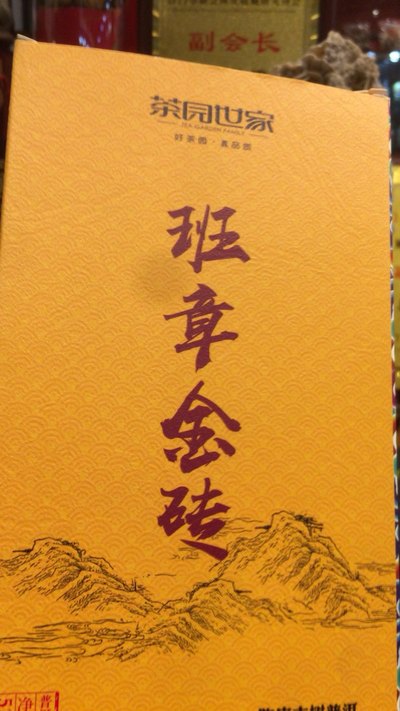 副会长
茶园世家
TEA GARDEN FAMILY
好茶园·真品质
班章金砖
普
净